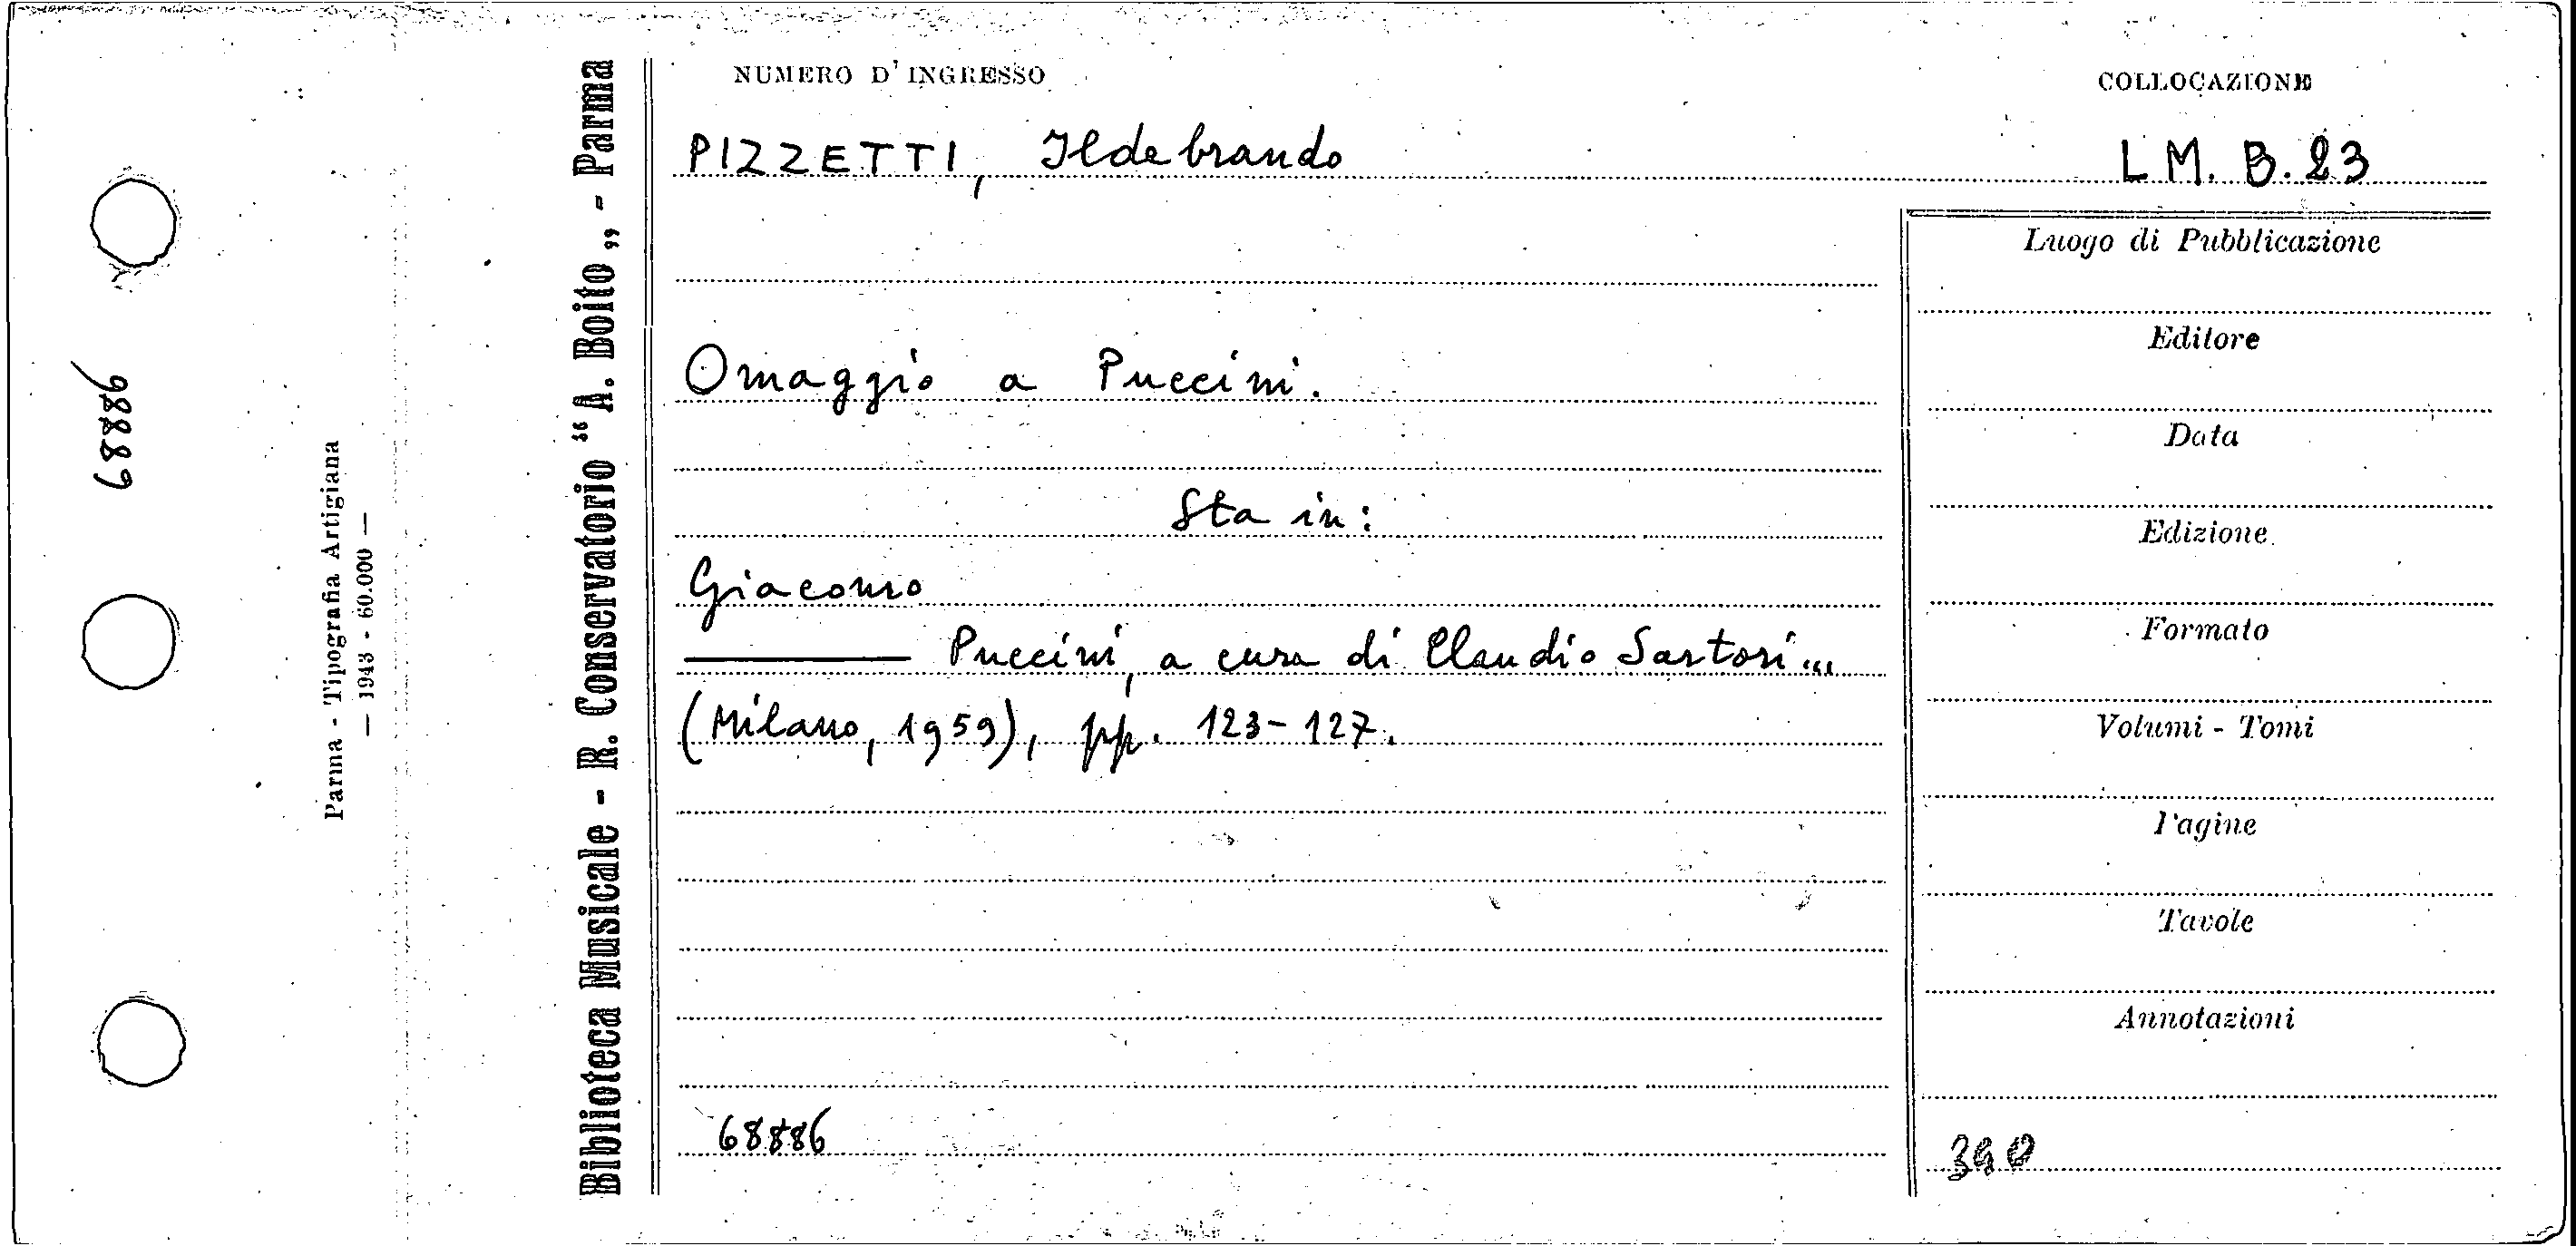 68886
Parma - Tipografia Artigiana
— 1943 - 60.000 —
Biblioteca Musicale - R. Conservatorio “A. Boito„ - Parma
NUMERO D'INGRESSO
COLLOCAZIONE
PIZZETTI, Ildebrando
LM. B.23
Omaggio a Puccini.
Sta in:
Giacomo
——— Puccini, a cura di Claudio Sartori...
(Milano, 1959), pp. 123-127.
68886
Luogo di Pubblicazione
Editore
Data
Edizione
Formato
Volumi - Tomi
Pagine
Tavole
Annotazioni